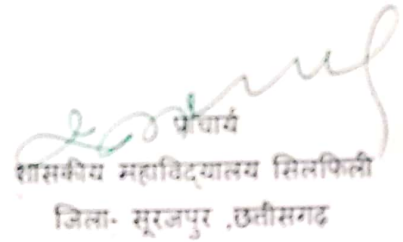 प्राचार्य
शासकीय महाविद्यालय सिलफिली
जिला- सूरजपुर ,छत्तीसगढ